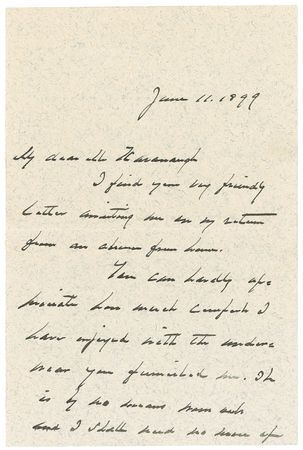 June 11. 1899
My dear Mr Kavanaugh
I find your very friendly
letter awaiting me on my return
from an absence from home.
You can hardly ap-
preciate how much comfort I
have enjoyed with the under-
wear you furnished me. It
is by no means worn out
and I shall need no more of